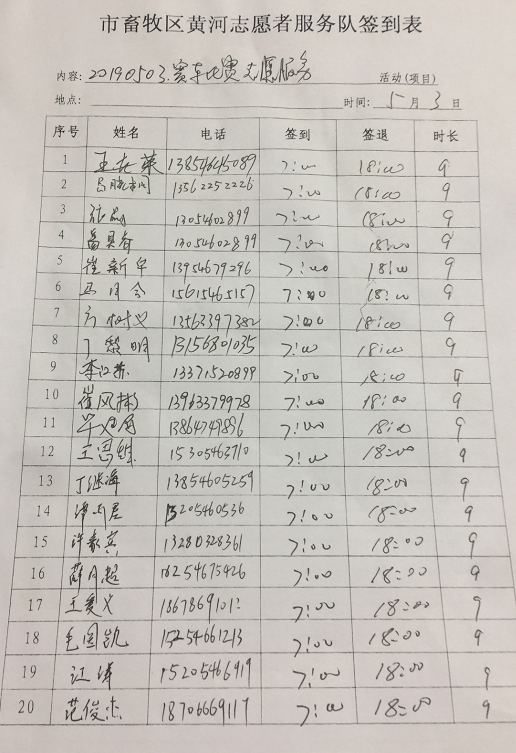 市畜牧区黄河志愿者服务队签到表
内容: 20190503.赛车比赛志愿服务 活动(项目)
地点: 时间: 5月3日
序号 姓名 电话 签到 签退 时长
1 13854645089 7:00 18:00 9
2 13562252226 7:00 18:00 9
3 13054602899 7:00 18:00 9
4 13054602899 7:00 18:00 9
5 崔新军 13954679296 7:00 18:00 9
6 15615465157 7:00 18:00 9
7 13563397382 7:00 18:00 9
8 丁黎明 13156801035 7:00 18:00 9
9 李江燕 13371520899 7:00 18:00 9
10 13963379978 7:00 18:00 9
11 13864749896 7:00 18:00 9
12 15305463710 7:00 18:00 9
13 丁继海 13854605259 7:00 18:00 9
14 13205460536 7:00 18:00 9
15 13280328361 7:00 18:00 9
16 薛月超 18254675426 7:00 18:00 9
17 王爱义 7:00 18:00 9
18 毛国凯 15254661213 7:00 18:00 9
19 江洋 15205466919 7:00 18:00 9
20 范俊杰 18706669117 7:00 18:00 9